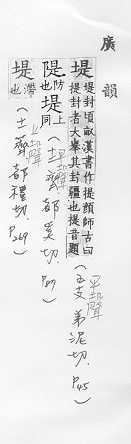 廣韻
堤 堤封頃畝漢書作提顏師古曰
提封者大舉其封疆也提音題
平聲
(五支 弟泥切. P.45)
隄 防也 堤 上同
平聲
(十二齊 都奚切. P.87)
堤 滯也
上聲
(十一薺 都禮切. P.269)